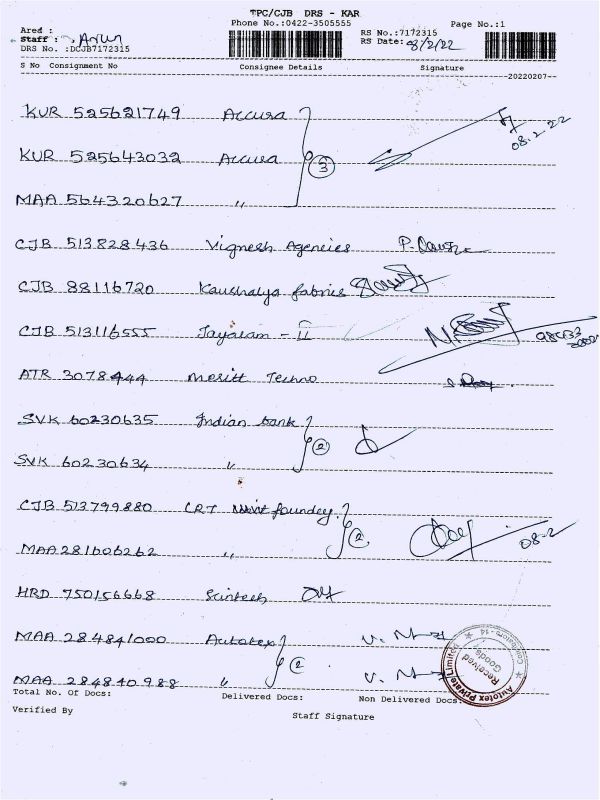 TPC/CJB DRS - KAR
Phone No.:0422-3505555 Page No.:1
Ared :
Staff : Arun RS No.:7172315
DRS No. :DCJB7172315 RS Date: 8/2/22
S No Consignment No Consignee Details Signature
20220207
KUR 525621749 Accura
08.2.22
KUR 525643032 Accura 3
MAA 564320627 "
CJB 513828436 Vignesh Agencies
CJB 88116720 Kaushalya fabrics
CJB 513116555 Jayaram - II
ATR 3078444 Meritt Techno
SVK 60230635 Indian bank 2
SVK 60230634 "
CJB 513799880 CRT foundry 2
MAA 281606262 " 08-2
HRD 750156668 Scintech
MAA 284841000 Autotex 2
MAA 284840988 "
Autotex Private Limited
Coimbatore - 14
Received
Goods
Total No. Of Docs: Delivered Docs: Non Delivered Docs:
Verified By Staff Signature